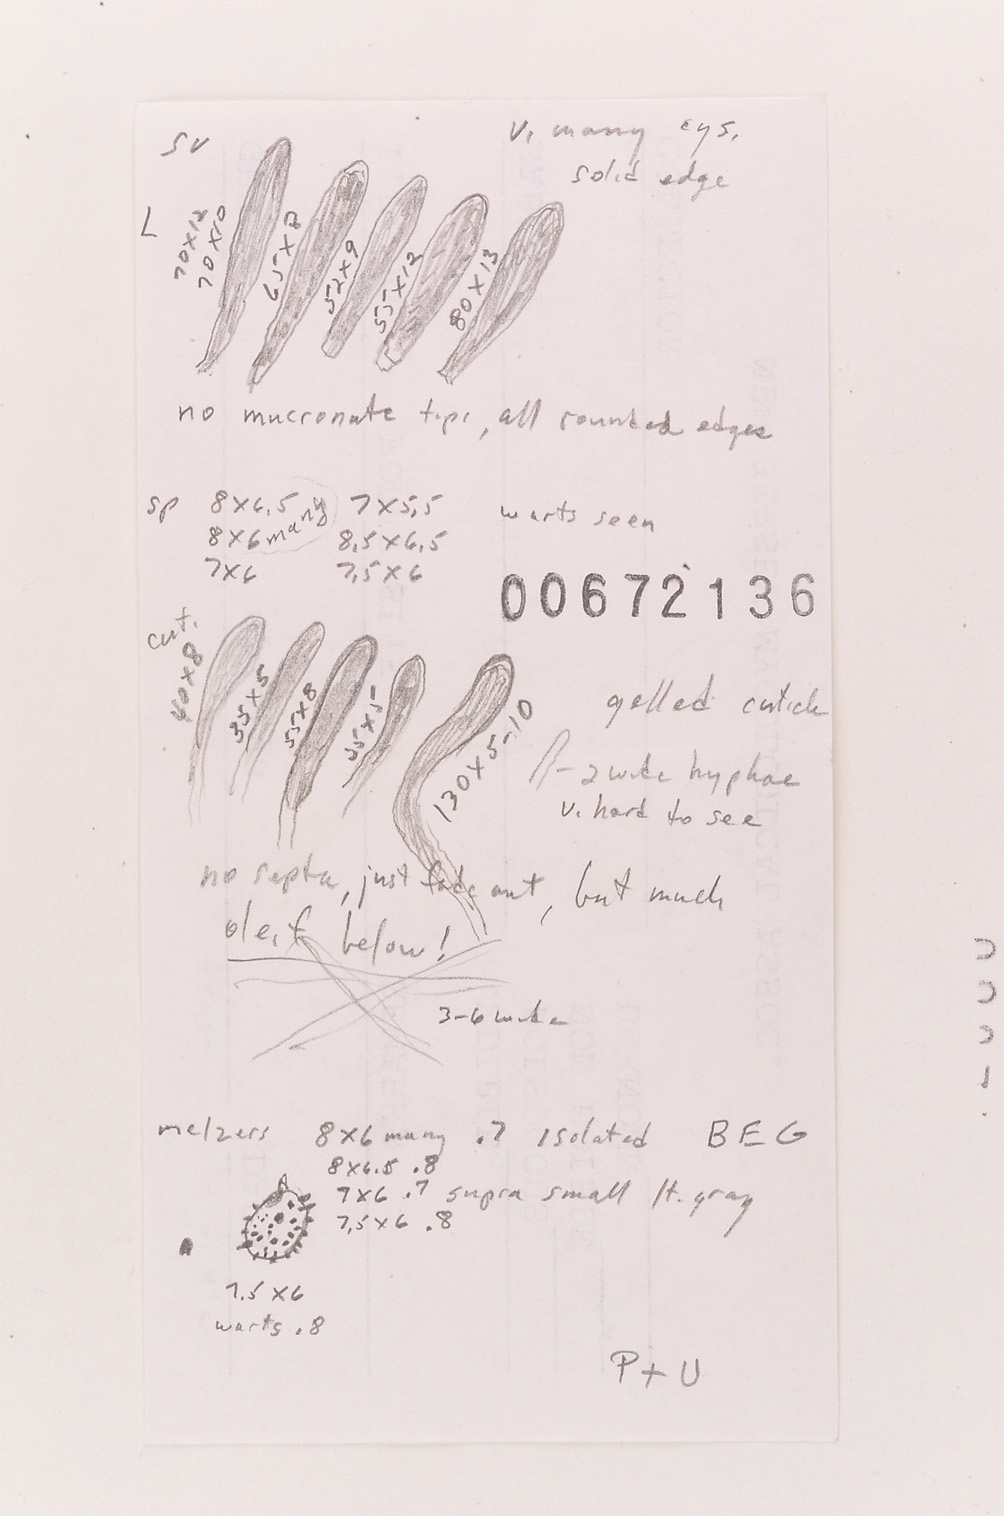 SV
v. many cys.
solid edge
L
70x12
70x10
65x8
52x9
55x12
80x13
no mucronate tips, all rounded edges
sp 8x6.5 7x5.5 warts seen
8x6 many 8.5x6.5
7x6 7.5x6
00672136
cut.
40x8
35x5
55x8
35x5
130x5-10
gelled cuticle
-2 wide hyphae
v. hard to see
no septa, just fade out, but much
oleif below!
3-6 wide
melzers 8x6 many .7 isolated BEG
8x6.5 .8
7x6 .7 supra small lt. gray
7.5x6 .8
7.5x6
warts .8
P+U